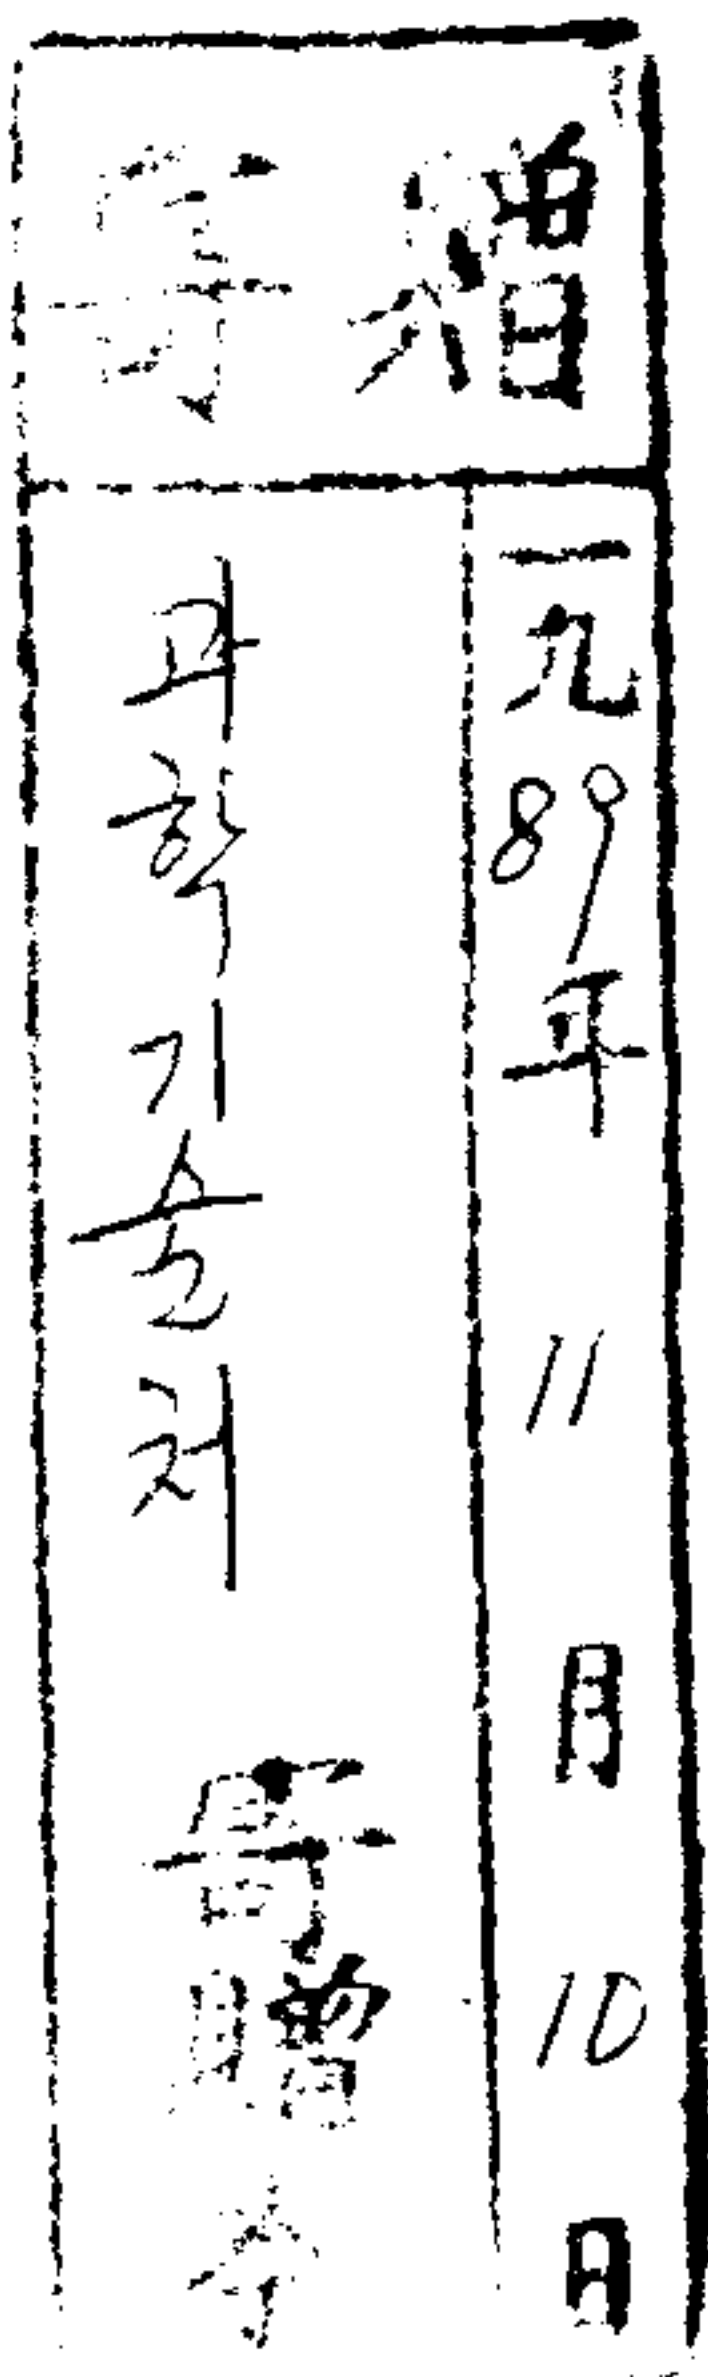 寄贈
一九89年 11 月 10 日
과학기술처 寄贈